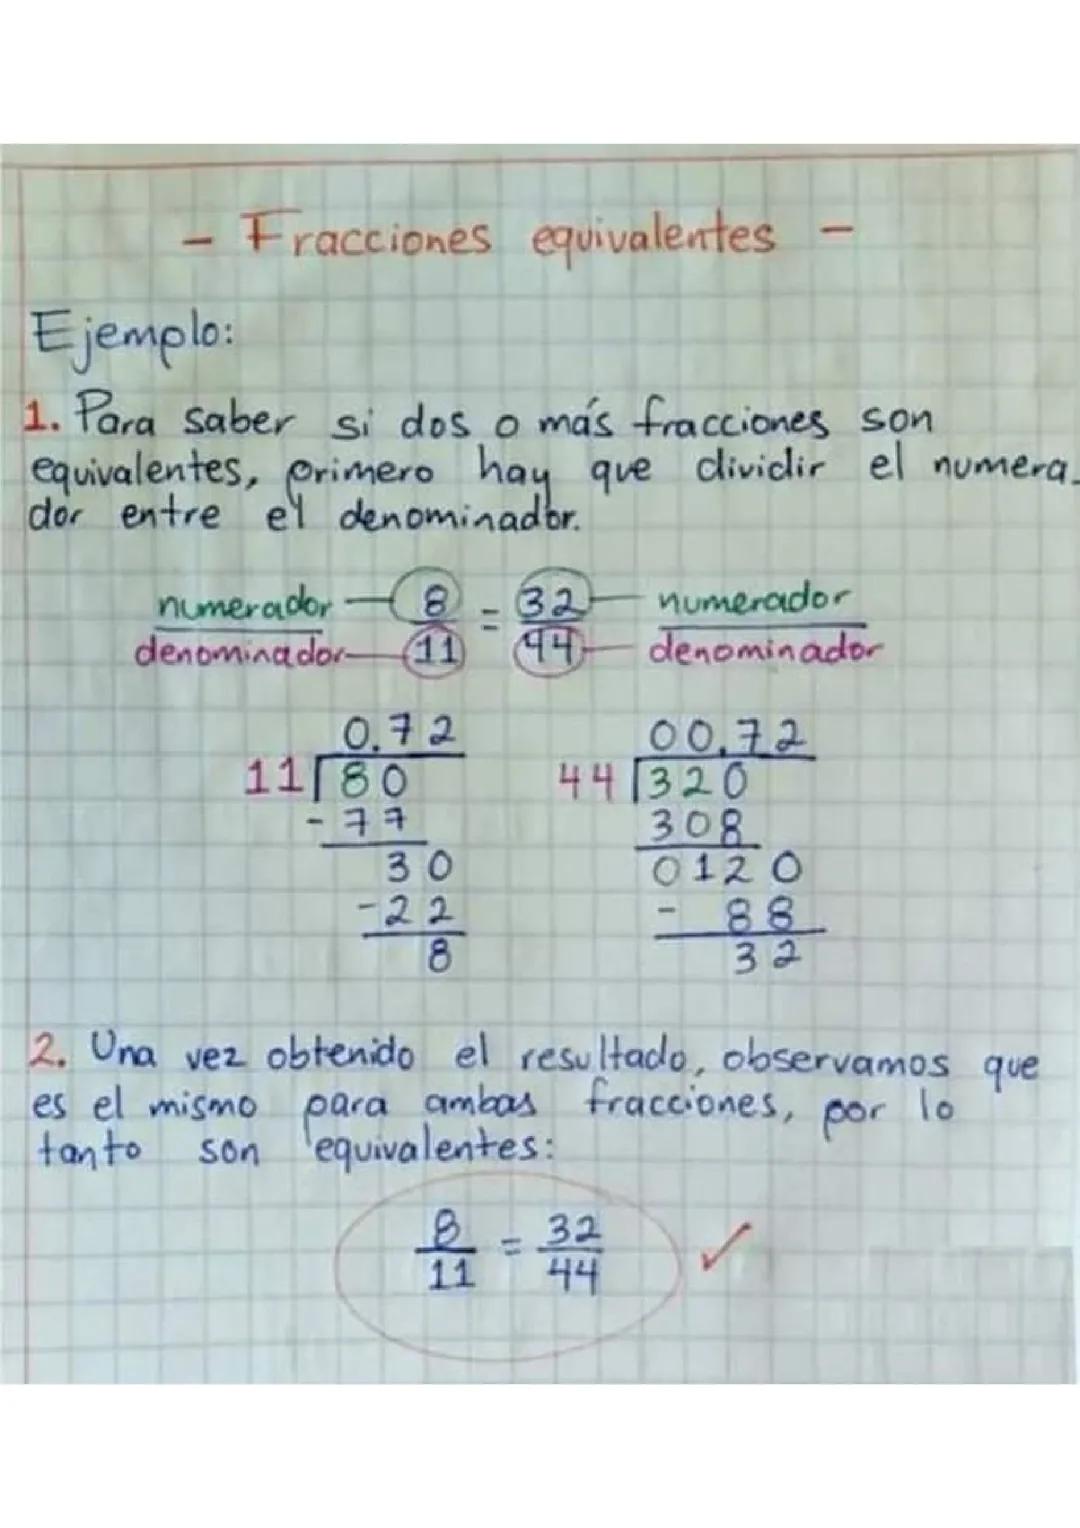 - Fracciones equivalentes -
Ejemplo:
1. Para saber si dos o más fracciones son
equivalentes, primero hay que dividir el numera-
dor entre el denominador.
numerador 8 = 32 numerador
denominador 11 44 denominador
0.72 00.72
11 80 44 320
- 77 308
30 0120
-22 - 88
8 32
2. Una vez obtenido el resultado, observamos que
es el mismo para ambas fracciones, por lo
tanto son equivalentes:
8 = 32 ✓
11 44